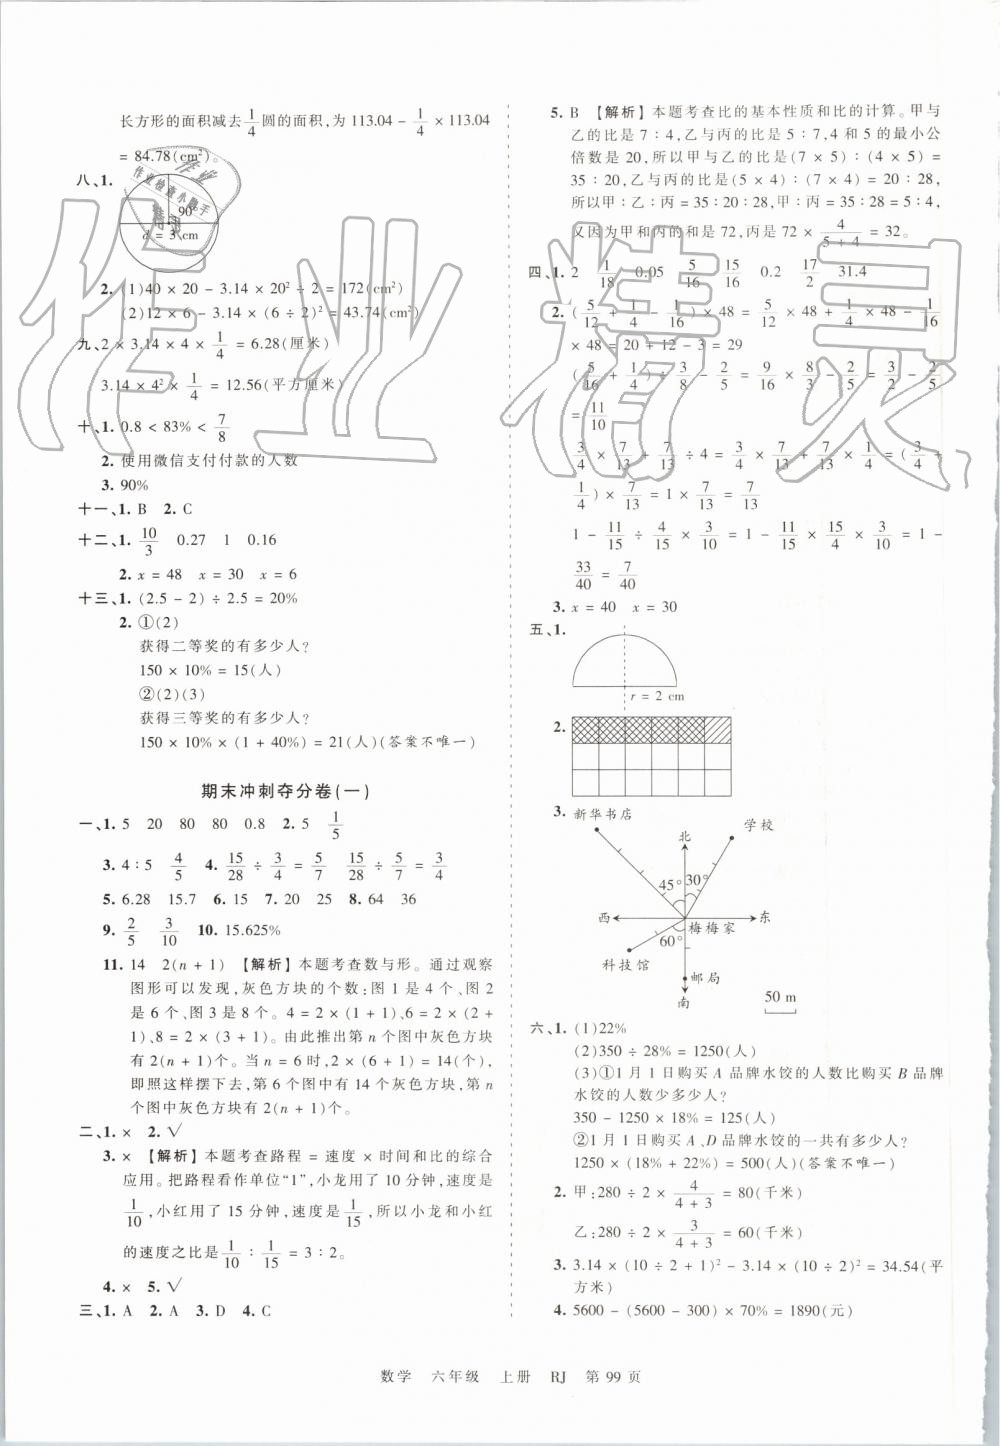 长方形的面积减去 1/4 圆的面积,为 113.04 - 1/4 × 113.04
= 84.78(cm²)。
八、1.
90°
d = 3 cm
2. (1)40 × 20 - 3.14 × 20² ÷ 2 = 172(cm²)
(2)12 × 6 - 3.14 × (6 ÷ 2)² = 43.74(cm²)
九、2 × 3.14 × 4 × 1/4 = 6.28(厘米)
3.14 × 4² × 1/4 = 12.56(平方厘米)
十、1. 0.8 < 83% < 7/8
2. 使用微信支付付款的人数
3. 90%
十一、1. B 2. C
十二、1. 10/3 0.27 1 0.16
2. x = 48 x = 30 x = 6
十三、1. (2.5 - 2) ÷ 2.5 = 20%
2. ①(2)
获得二等奖的有多少人?
150 × 10% = 15(人)
②(2)(3)
获得三等奖的有多少人?
150 × 10% × (1 + 40%) = 21(人)(答案不唯一)
期末冲刺夺分卷(一)
一、1. 5 20 80 80 0.8 2. 5 1/5
3. 4∶5 4/5 4. 15/28 ÷ 3/4 = 5/7 15/28 ÷ 5/7 = 3/4
5. 6.28 15.7 6. 15 7. 20 25 8. 64 36
9. 2/5 3/10 10. 15.625%
11. 14 2(n + 1) 【解析】本题考查数与形。通过观察
图形可以发现,灰色方块的个数:图 1 是 4 个、图 2
是 6 个、图 3 是 8 个。4 = 2 × (1 + 1),6 = 2 × (2 +
1),8 = 2 × (3 + 1)。由此推出第 n 个图中灰色方块
有 2(n + 1)个。当 n = 6 时,2 × (6 + 1) = 14(个),
即照这样摆下去,第 6 个图中有 14 个灰色方块,第 n
个图中灰色方块有 2(n + 1)个。
二、1. × 2. √
3. × 【解析】本题考查路程 = 速度 × 时间和比的综合
应用。把路程看作单位“1”,小龙用了 10 分钟,速度是
1/10,小红用了 15 分钟,速度是 1/15,所以小龙和小红
的速度之比是 1/10∶1/15 = 3∶2。
4. × 5. √
三、1. A 2. A 3. D 4. C
5. B 【解析】本题考查比的基本性质和比的计算。甲与
乙的比是 7∶4,乙与丙的比是 5∶7,4 和 5 的最小公
倍数是 20,所以甲与乙的比是(7 × 5)∶(4 × 5) =
35∶20,乙与丙的比是(5 × 4)∶(7 × 4) = 20∶28,
所以甲∶乙∶丙 = 35∶20∶28,甲∶丙 = 35∶28 = 5∶4,
又因为甲和丙的和是 72,丙是 72 × 4/(5 + 4) = 32。
四、1. 2 1/18 0.05 5/16 15/16 0.2 17/2 31.4
2. (5/12 + 1/4 - 1/16) × 48 = 5/12 × 48 + 1/4 × 48 - 1/16
× 48 = 20 + 12 - 3 = 29
(5/16 + 1/4) ÷ 3/8 - 2/5 = 9/16 × 8/3 - 2/5 = 3/2 - 2/5
= 11/10
3/4 × 7/13 + 7/13 ÷ 4 = 3/4 × 7/13 + 7/13 × 1/4 = (3/4 +
1/4) × 7/13 = 1 × 7/13 = 7/13
1 - 11/15 ÷ 4/15 × 3/10 = 1 - 11/15 × 15/4 × 3/10 = 1 -
33/40 = 7/40
3. x = 40 x = 30
五、1.
r = 2 cm
2.
3.
新华书店
学校
北
45°
30°
西
东
梅梅家
60°
科技馆
邮局
南
50 m
六、1. (1)22%
(2)350 ÷ 28% = 1250(人)
(3)①1 月 1 日购买 A 品牌水饺的人数比购买 B 品牌
水饺的人数少多少人?
350 - 1250 × 18% = 125(人)
②1 月 1 日购买 A、D 品牌水饺的一共有多少人?
1250 × (18% + 22%) = 500(人)(答案不唯一)
2. 甲:280 ÷ 2 × 4/(4 + 3) = 80(千米)
乙:280 ÷ 2 × 3/(4 + 3) = 60(千米)
3. 3.14 × (10 ÷ 2 + 1)² - 3.14 × (10 ÷ 2)² = 34.54(平
方米)
4. 5600 - (5600 - 300) × 70% = 1890(元)
数学 六年级 上册 RJ 第 99 页
作业精灵
作业
作业检查小助手